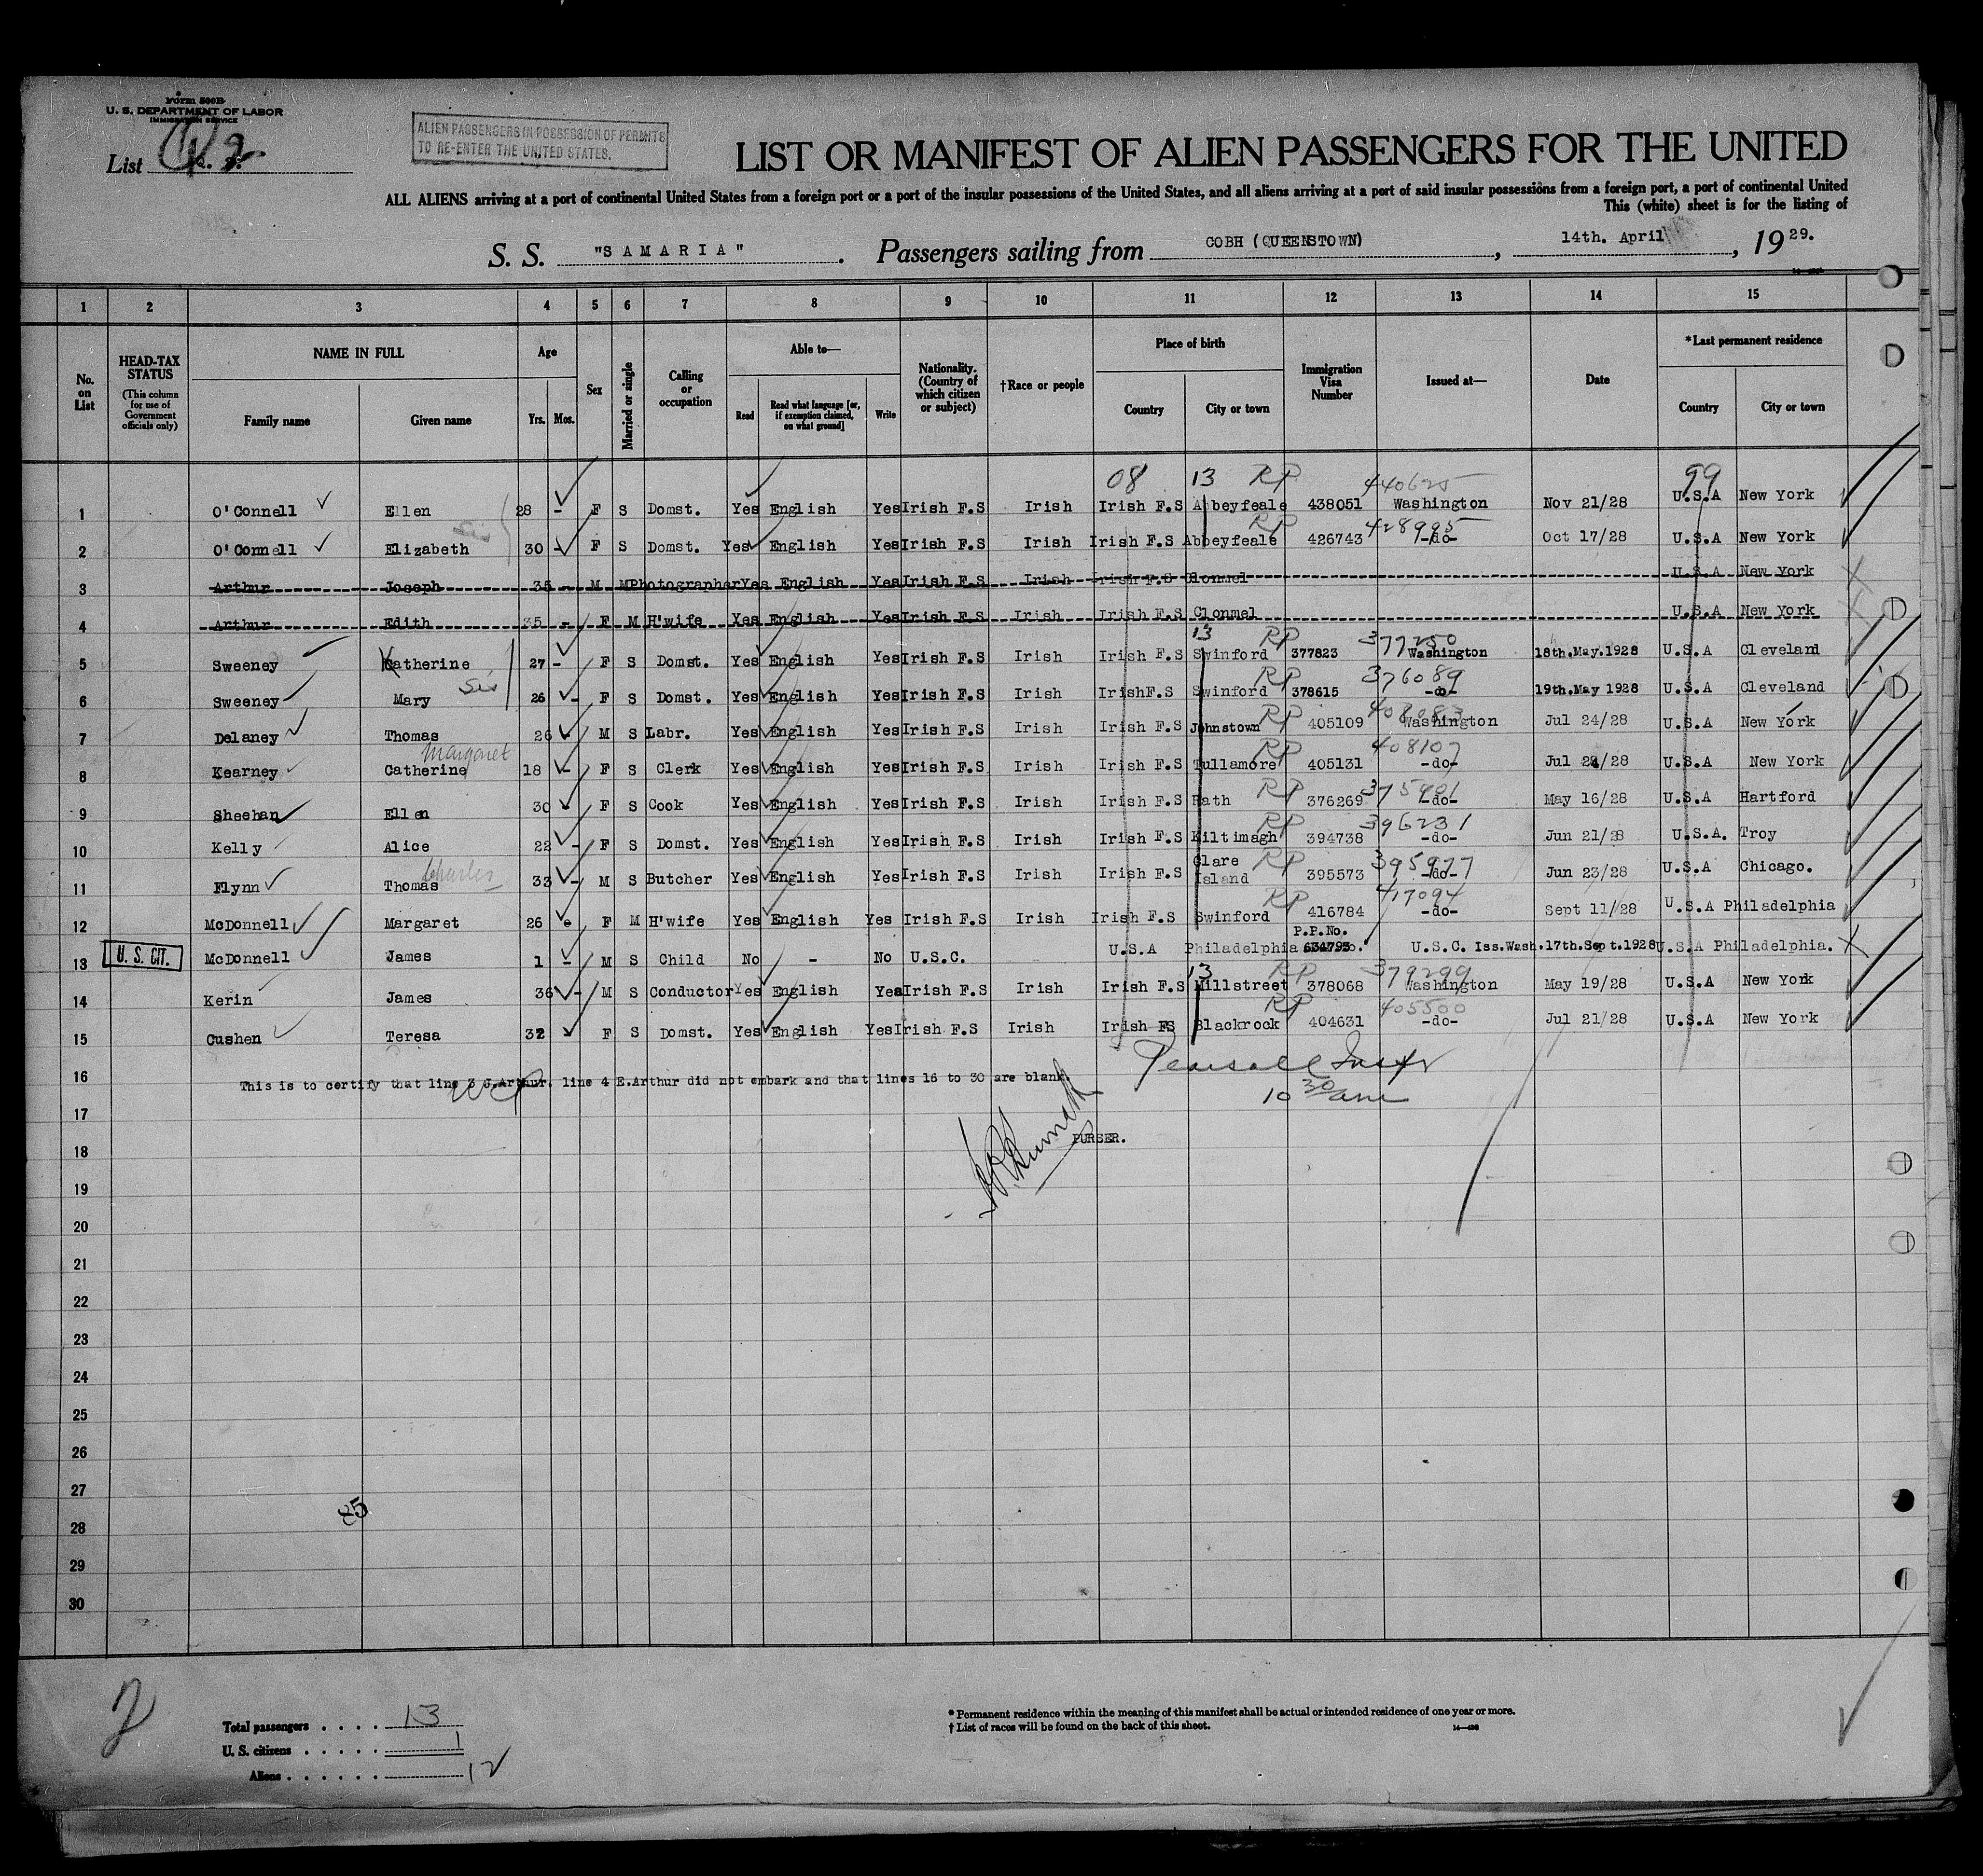 Form 500B
U. S. DEPARTMENT OF LABOR
IMMIGRATION SERVICE
List 2
ALIEN PASSENGERS IN POSSESSION OF PERMITS
TO RE-ENTER THE UNITED STATES.
LIST OR MANIFEST OF ALIEN PASSENGERS FOR THE UNITED
ALL ALIENS arriving at a port of continental United States from a foreign port or a port of the insular possessions of the United States, and all aliens arriving at a port of said insular possessions from a foreign port, a port of continental United
This (white) sheet is for the listing of
S. S. "SAMARIA". Passengers sailing from COBH (QUEENSTOWN), 14th. April, 1929.
1 2 3 4 5 6 7 8 9 10 11 12 13 14 15
No. on List
HEAD-TAX STATUS (This column for use of Government officials only)
NAME IN FULL Family name Given name
Age Yrs. Mos.
Sex
Married or single
Calling or occupation
Able to— Read Read what language [or, if exemption claimed, on what ground] Write
Nationality. (Country of which citizen or subject)
†Race or people
Place of birth Country City or town
Immigration Visa Number
Issued at—
Date
*Last permanent residence Country City or town
08 13 RP 440625 99
1 O'Connell Ellen 28 - F S Domst. Yes English Yes Irish F.S Irish Irish F.S Abbeyfeale 438051 Washington Nov 21/28 U.S.A New York
RP 428995
2 O'Connell Elizabeth 30 - F S Domst. Yes English Yes Irish F.S Irish Irish F.S Abbeyfeale 426743 -do- Oct 17/28 U.S.A New York
3 Arthur Joseph 35 - M M Photographer Yes English Yes Irish F.S Irish Irish F.S Clonmel U.S.A New York
4 Arthur Edith 35 - F M H'wife Yes English Yes Irish F.S Irish Irish F.S Clonmel U.S.A New York
13 RP 377250
5 Sweeney Catherine 27 - F S Domst. Yes English Yes Irish F.S Irish Irish F.S Swinford 377823 Washington 18th.May.1928 U.S.A Cleveland
Sis RP 376089
6 Sweeney Mary 26 - F S Domst. Yes English Yes Irish F.S Irish IrishF.S Swinford 378615 -do- 19th.May 1928 U.S.A Cleveland
RP 408083
7 Delaney Thomas 26 - M S Labr. Yes English Yes Irish F.S Irish Irish F.S Johnstown 405109 Washington Jul 24/28 U.S.A New York
Margaret RP 408107
8 Kearney Catherine 18 - F S Clerk Yes English Yes Irish F.S Irish Irish F.S Tullamore 405131 -do- Jul 24/28 U.S.A New York
RP
9 Sheehan Ellen 30 - F S Cook Yes English Yes Irish F.S Irish Irish F.S Rath 376269 -do- May 16/28 U.S.A Hartford
RP 396231
10 Kelly Alice 22 - F S Domst. Yes English Yes Irish F.S Irish Irish F.S Kiltimagh 394738 -do- Jun 21/28 U.S.A. Troy
Charles RP 395977
11 Flynn Thomas 33 - M S Butcher Yes English Yes Irish F.S Irish Irish F.S Clare Island 395573 -do- Jun 23/28 U.S.A Chicago.
RP 417094
12 McDonnell Margaret 26 F M H'wife Yes English Yes Irish F.S Irish Irish F.S Swinford 416784 -do- Sept 11/28 U.S.A Philadelphia
P.P.No.
13 U. S. CIT. McDonnell James 1 - M S Child No - No U.S.C. U.S.A Philadelphia 634793 U.S.C. Iss.Wash.17th.Sept.1928 U.S.A Philadelphia.
13 RP 379299
14 Kerin James 36 - M S Conductor Yes English Yes Irish F.S Irish Irish F.S Millstreet 378068 Washington May 19/28 U.S.A New York
RP 405500
15 Cushen Teresa 32 F S Domst. Yes English Yes Irish F.S Irish Irish FS Blackrock 404631 -do- Jul 21/28 U.S.A New York
16 This is to certify that line 3 J.Arthur. line 4 E.Arthur did not embark and that lines 16 to 30 are blank.
10 30 am
17
PURSER.
18
19
20
21
22
23
24
25
26
27
85
28
29
30
2
Total passengers . . . . 13
U. S. citizens . . . . . 1
Aliens . . . . . . 12
* Permanent residence within the meaning of this manifest shall be actual or intended residence of one year or more.
† List of races will be found on the back of this sheet.